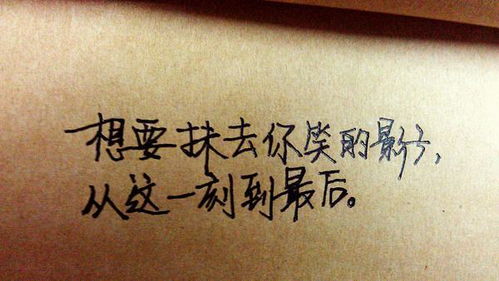 想要抹去你笑的影子，
从这一刻到最后。